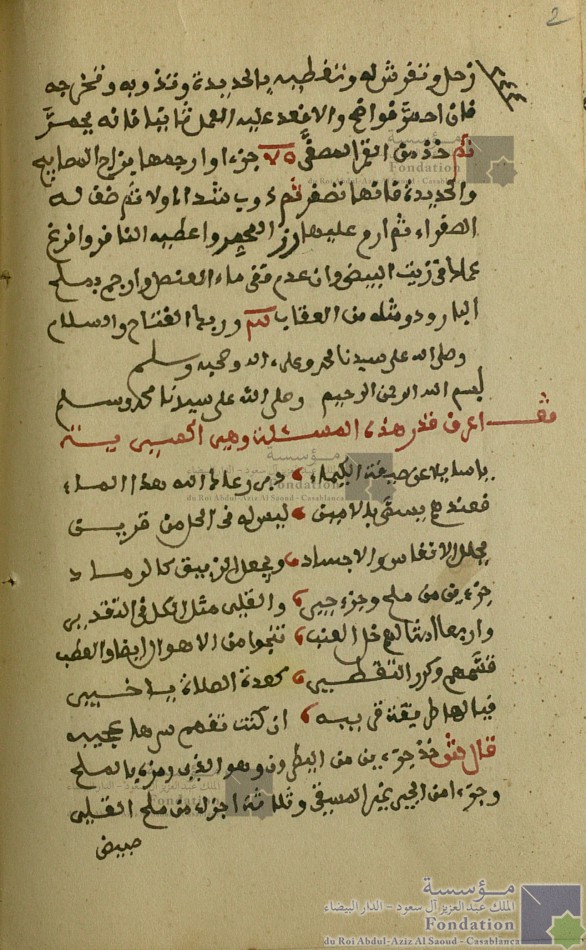 2
زحل وتفرش له وتغطيه بالحديدة وتذوبه وتخرجه
فان احمرّ فواضح والا فعد عليه العمل ثانيا فانه يحمرّ
ثم خذ من القزدير المصفّى جزء او ارجمها بزاج المصابيح
والحديدة فانها تصفر ثم ذوب شدا اولا ثم ضف له
الصفراء ثم ارم عليها رزّ المجمر واعطيه النار وافرغ
عملك في زيت البيض وان عدم ففي ماء العنصل وارجم بملح
البارود ومثله من العقاب تم وربنا الفتاح والسلام
وصلى الله على سيدنا محمد وعلى اله وصحبه وسلم
بسم الله الرحمن الرحيم وصلى الله على سيدنا محمد وسلم
اعرف قدر هذه المسئلة وهي
يا سايلا عن صبغة الكيمياء دبر رعاك الله هذا الماء
فعندهم يسمى بالامين ليس له في الحل من قرين
يحلل الانفاس والاجساد ويجعل الزيبق كالرماد
جزءين من ملح وجزء جير والقلي مثل الكل في التقدير
واربعا امثالهم خل العنب تنجوا من الاهوال ايضا والعطب
فتمهم وكرر التقطير كعدة الصلاة يا خبير
فيا لها طريقة قريبه ان كنت تفهم سرها عجيبه
قال خذ جزءين من النطرون وهو الذي رمزه بالملح
وجزءا من الجير غير المسقي وثلاثة اجزاء من ملح القلي
مؤسسة
الملك عبد العزيز آل سعود - الدار البيضاء
Fondation
du Roi Abdul-Aziz Al Saoud - Casablanca